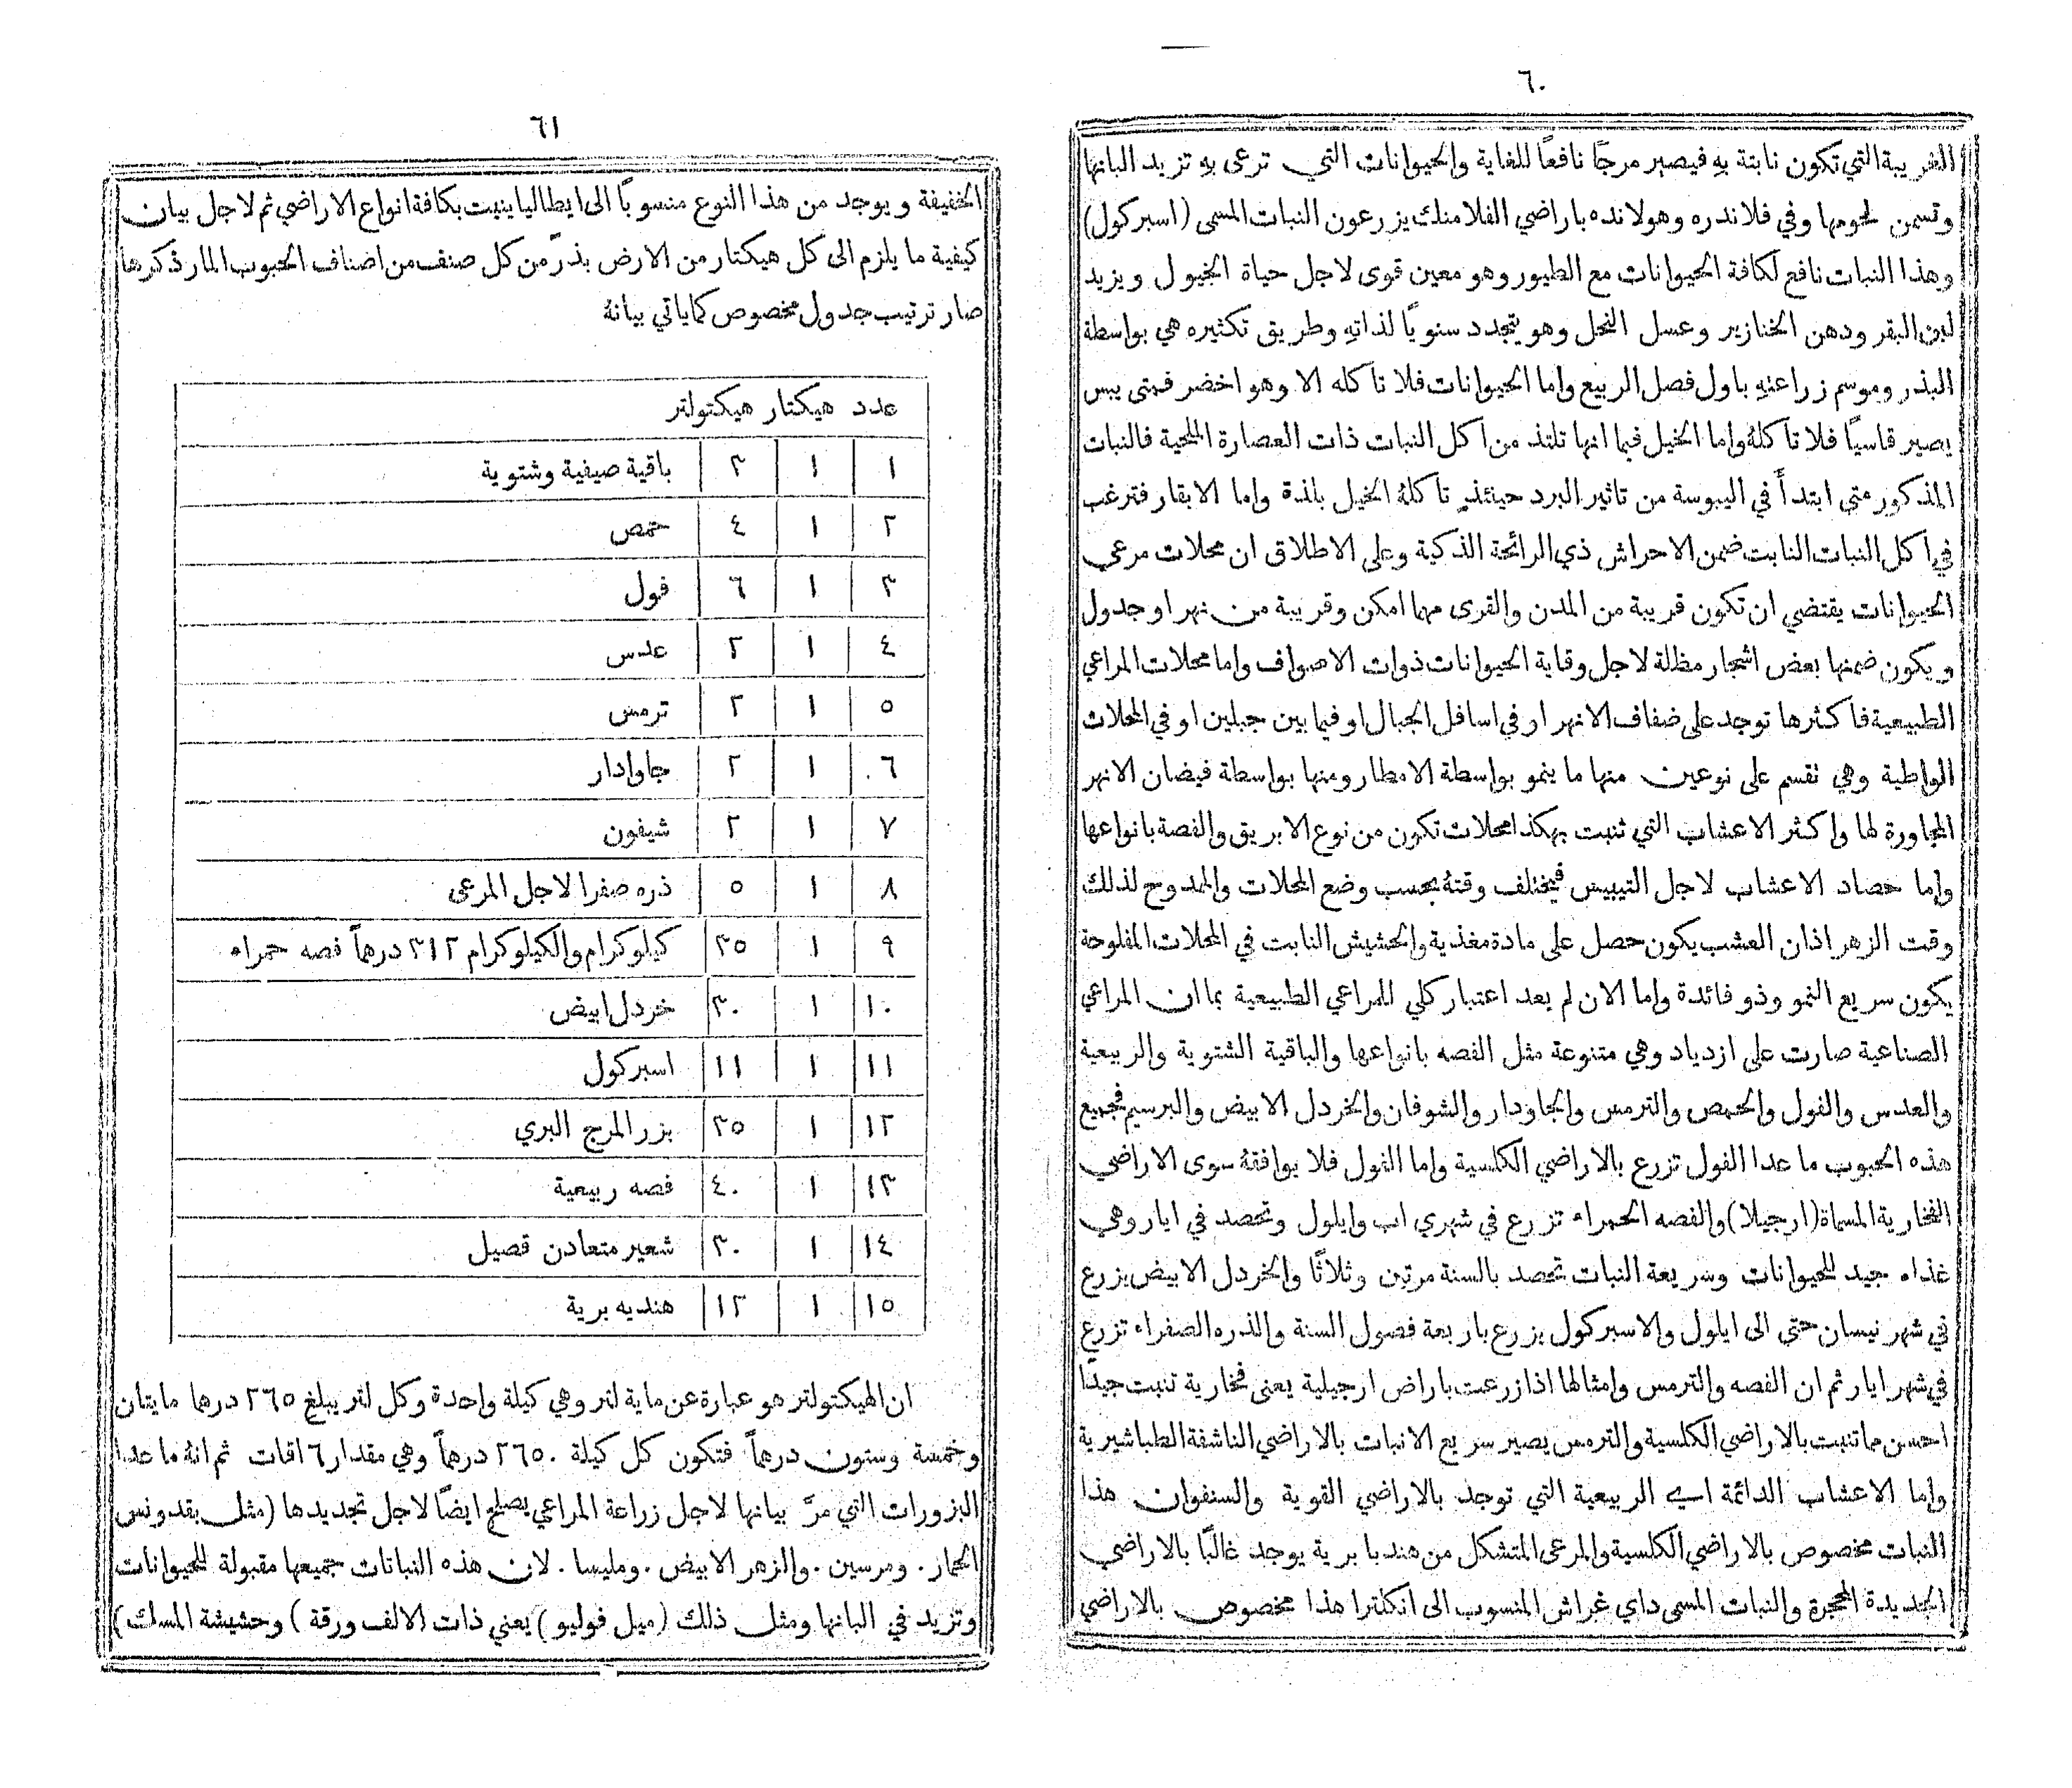 ٦٠
الغريبة التي تكون نابتة بهِ فيصير مرجًا نافعًا للغاية والحيوانات التي ترعى بهِ تزيد البانها
وتسمن لحومها وفي فلاندره وهولانده باراضي الفلامنك يزرعون النبات المسمى (اسبركول)
وهذا النبات نافع لكافة الحيوانات مع الطيور وهو معين قوى لاجل حياة الخيول ويزيد
لبن البقر ودهن الخنازير وعسل النحل وهو يتجدد سنويًا لذاتهِ وطريق تكثيره هي بواسطة
البذر وموسم زراعتهِ باول فصل الربيع واما الحيوانات فلا تاكله الا وهو اخضر فمتى يبس
يصير قاسيًا فلا تاكلهُ واما الخيل فبما انها تلتذ من اكل النبات ذات العصارة الملحية فالنبات
المذكور متى ابتدأ في اليبوسة من تاثير البرد حينئذٍ تاكلهُ الخيل بلذة واما الابقار فترغب
في اكل النبات النابت ضمن الاحراش ذي الرائحة الذكية وعلى الاطلاق ان محلات مرعى
الحيوانات يقتضي ان تكون قريبة من المدن والقرى مهما امكن وقريبة من نهر او جدول
ويكون ضمنها بعض اشجار مظللة لاجل وقاية الحيوانات ذوات الاصواف واما محلات المراعي
الطبيعية فاكثرها توجد على ضفاف الانهر او في اسافل الجبال او فيما بين جبلين او في المحلات
الواطية وهي تقسم على نوعين منها ما ينمو بواسطة الامطار ومنها بواسطة فيضان الانهر
المجاورة لها واكثر الاعشاب التي تنبت بهكذا محلات تكون من نوع الابريق والفصة بانواعها
واما حصاد الاعشاب لاجل التيبيس فيختلف وقتهُ بحسب وضع المحلات والممدوح لذلك
وقت الزهر اذ ان العشب يكون حصل على مادة مغذية والحشيش النابت في المحلات المفلوحة
يكون سريع النمو وذو فائدة واما الان لم يعد اعتبار كلي للمراعي الطبيعية بما ان المراعي
الصناعية صارت على ازدياد وهي متنوعة مثل الفصه بانواعها والباقية الشتوية والربيعية
والعدس والفول والحمص والترمس والجاودار والشوفان والخردل الابيض والبرسيم فجميع
هذه الحبوب ما عدا الفول تزرع بالاراضي الكلسية واما الفول فلا يوافقهُ سوى الاراضي
الفخارية المسماة (ارجيلا) والفصه الحمراء تزرع في شهري اب وايلول وتحصد في ايار وهي
غذاء جيد للحيوانات وسريعة النبات تحصد بالسنة مرتين وثلاثًا والخردل الابيض يزرع
في شهر نيسان حتى الى ايلول والاسبركول يزرع باربعة فصول السنة والذره الصفراء تزرع
في شهر ايار ثم ان الفصه والترمس وامثالها اذا زرعت باراض ارجيلية يعنى فخارية تنبت جيدًا
احسن مما تنبت بالاراضي الكلسية والترمس يصير سريع الانبات بالاراضي الناشفة الطباشيرية
واما الاعشاب الدائمة اي الربيعية التي توجد بالاراضي القوية والسنفوان هذا
النبات مخصوص بالاراضي الكلسية والمرعى المتشكل من هندبا برية يوجد غالبًا بالاراضي
الجديدة المحجرة والنبات المسمى داي غراش المنسوب الى انكلترا هذا مخصوص بالاراضي
٦١
الخفيفة ويوجد من هذا النوع منسوبًا الى ايطاليا ينبت بكافة انواع الاراضي ثم لاجل بيان
كيفية ما يلزم الى كل هيكتار من الارض بذرّ من كل صنف من اصناف الحبوب المار ذكرها
صار ترتيب جدول مخصوص كما ياتي بيانهُ
عدد هيكتار هيكتولتر
١ ١ ٣ باقية صيفية وشتوية
٢ ١ ٤ حمص
٣ ١ ٦ فول
٤ ١ ٢ عدس
٥ ١ ٢ ترمس
٦ ١ ٢ جاوادار
٧ ١ ٢ شيفون
٨ ١ ٥ ذره صفرا لاجل المرعى
٩ ١ ٣٥ كيلوكرام والكيلوكرام ٣١٢ درهماً فصه حمراء
١٠ ١ ٣٠ خردل ابيض
١١ ١ ١١ اسبركول
١٢ ١ ٣٥ بزر المرج البري
١٣ ١ ٤٠ فصه ربيعية
١٤ ١ ٣٠ شعير متعادن قصيل
١٥ ١ ١٢ هنديه برية
ان الهيكتولتر هو عبارة عن ماية لتر وهي كيلة واحدة وكل لتر يبلغ ٢٦٥ درها مايتان
وخمسة وستون درهماً فتكون كل كيلة ٢٦٥٠ درهماً وهي مقدار ٦ اقات ثم انهُ ما عدا
البزورات التي مرَّ بيانها لاجل زراعة المراعي يصلح ايضًا لاجل تجديدها (مثل بقدونس
الحمار. ومرسين. والزهر الابيض. ومليسا. لان هذه النباتات جميعها مقبولة للحيوانات
وتزيد في البانها ومثل ذلك (ميل فوليو) يعني ذات الالف ورقة) وحشيشة المسك)